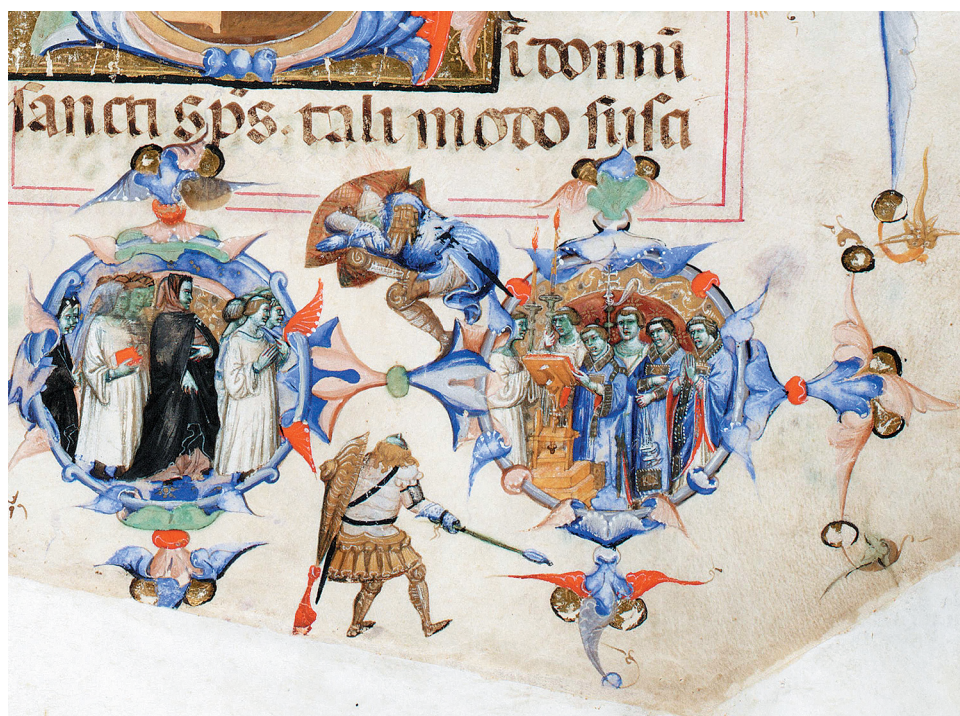 i domni
sancti sps. tali modo susci